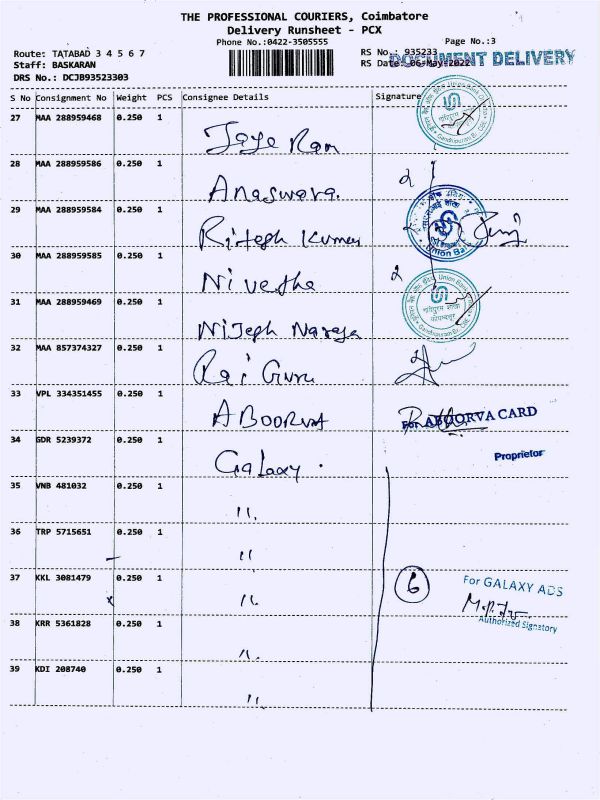 THE PROFESSIONAL COURIERS, Coimbatore
Delivery Runsheet - PCX
Phone No.:0422-3505555
Page No.:3
Route: TATABAD 3 4 5 6 7
RS No.: 935233
Staff: BASKARAN
RS Date: 06-May-2022
DOCUMENT DELIVERY
DRS No.: DCJB93523303
S No Consignment No Weight PCS Consignee Details Signature
27 MAA 288959468 0.250 1 Jaya Ram
28 MAA 288959586 0.250 1 Anaswara.
29 MAA 288959584 0.250 1 Ritesh Kumar
Union Ba
30 MAA 288959585 0.250 1 Nivetha
31 MAA 288959469 0.250 1 Nijesh Naraya
32 MAA 857374327 0.250 1 Rai Guru
33 VPL 334351455 0.250 1 ABOORVA
For ABOORVA CARD
34 GDR 5239372 0.250 1 Galaxy.
Proprietor
35 VNB 481032 0.250 1 ".
36 TRP 5715651 0.250 1 "
37 KKL 3081479 0.250 1 ".
6
For GALAXY ADS
Authorized Signatory
38 KRR 5361828 0.250 1 ".
39 KDI 208740 0.250 1 ".